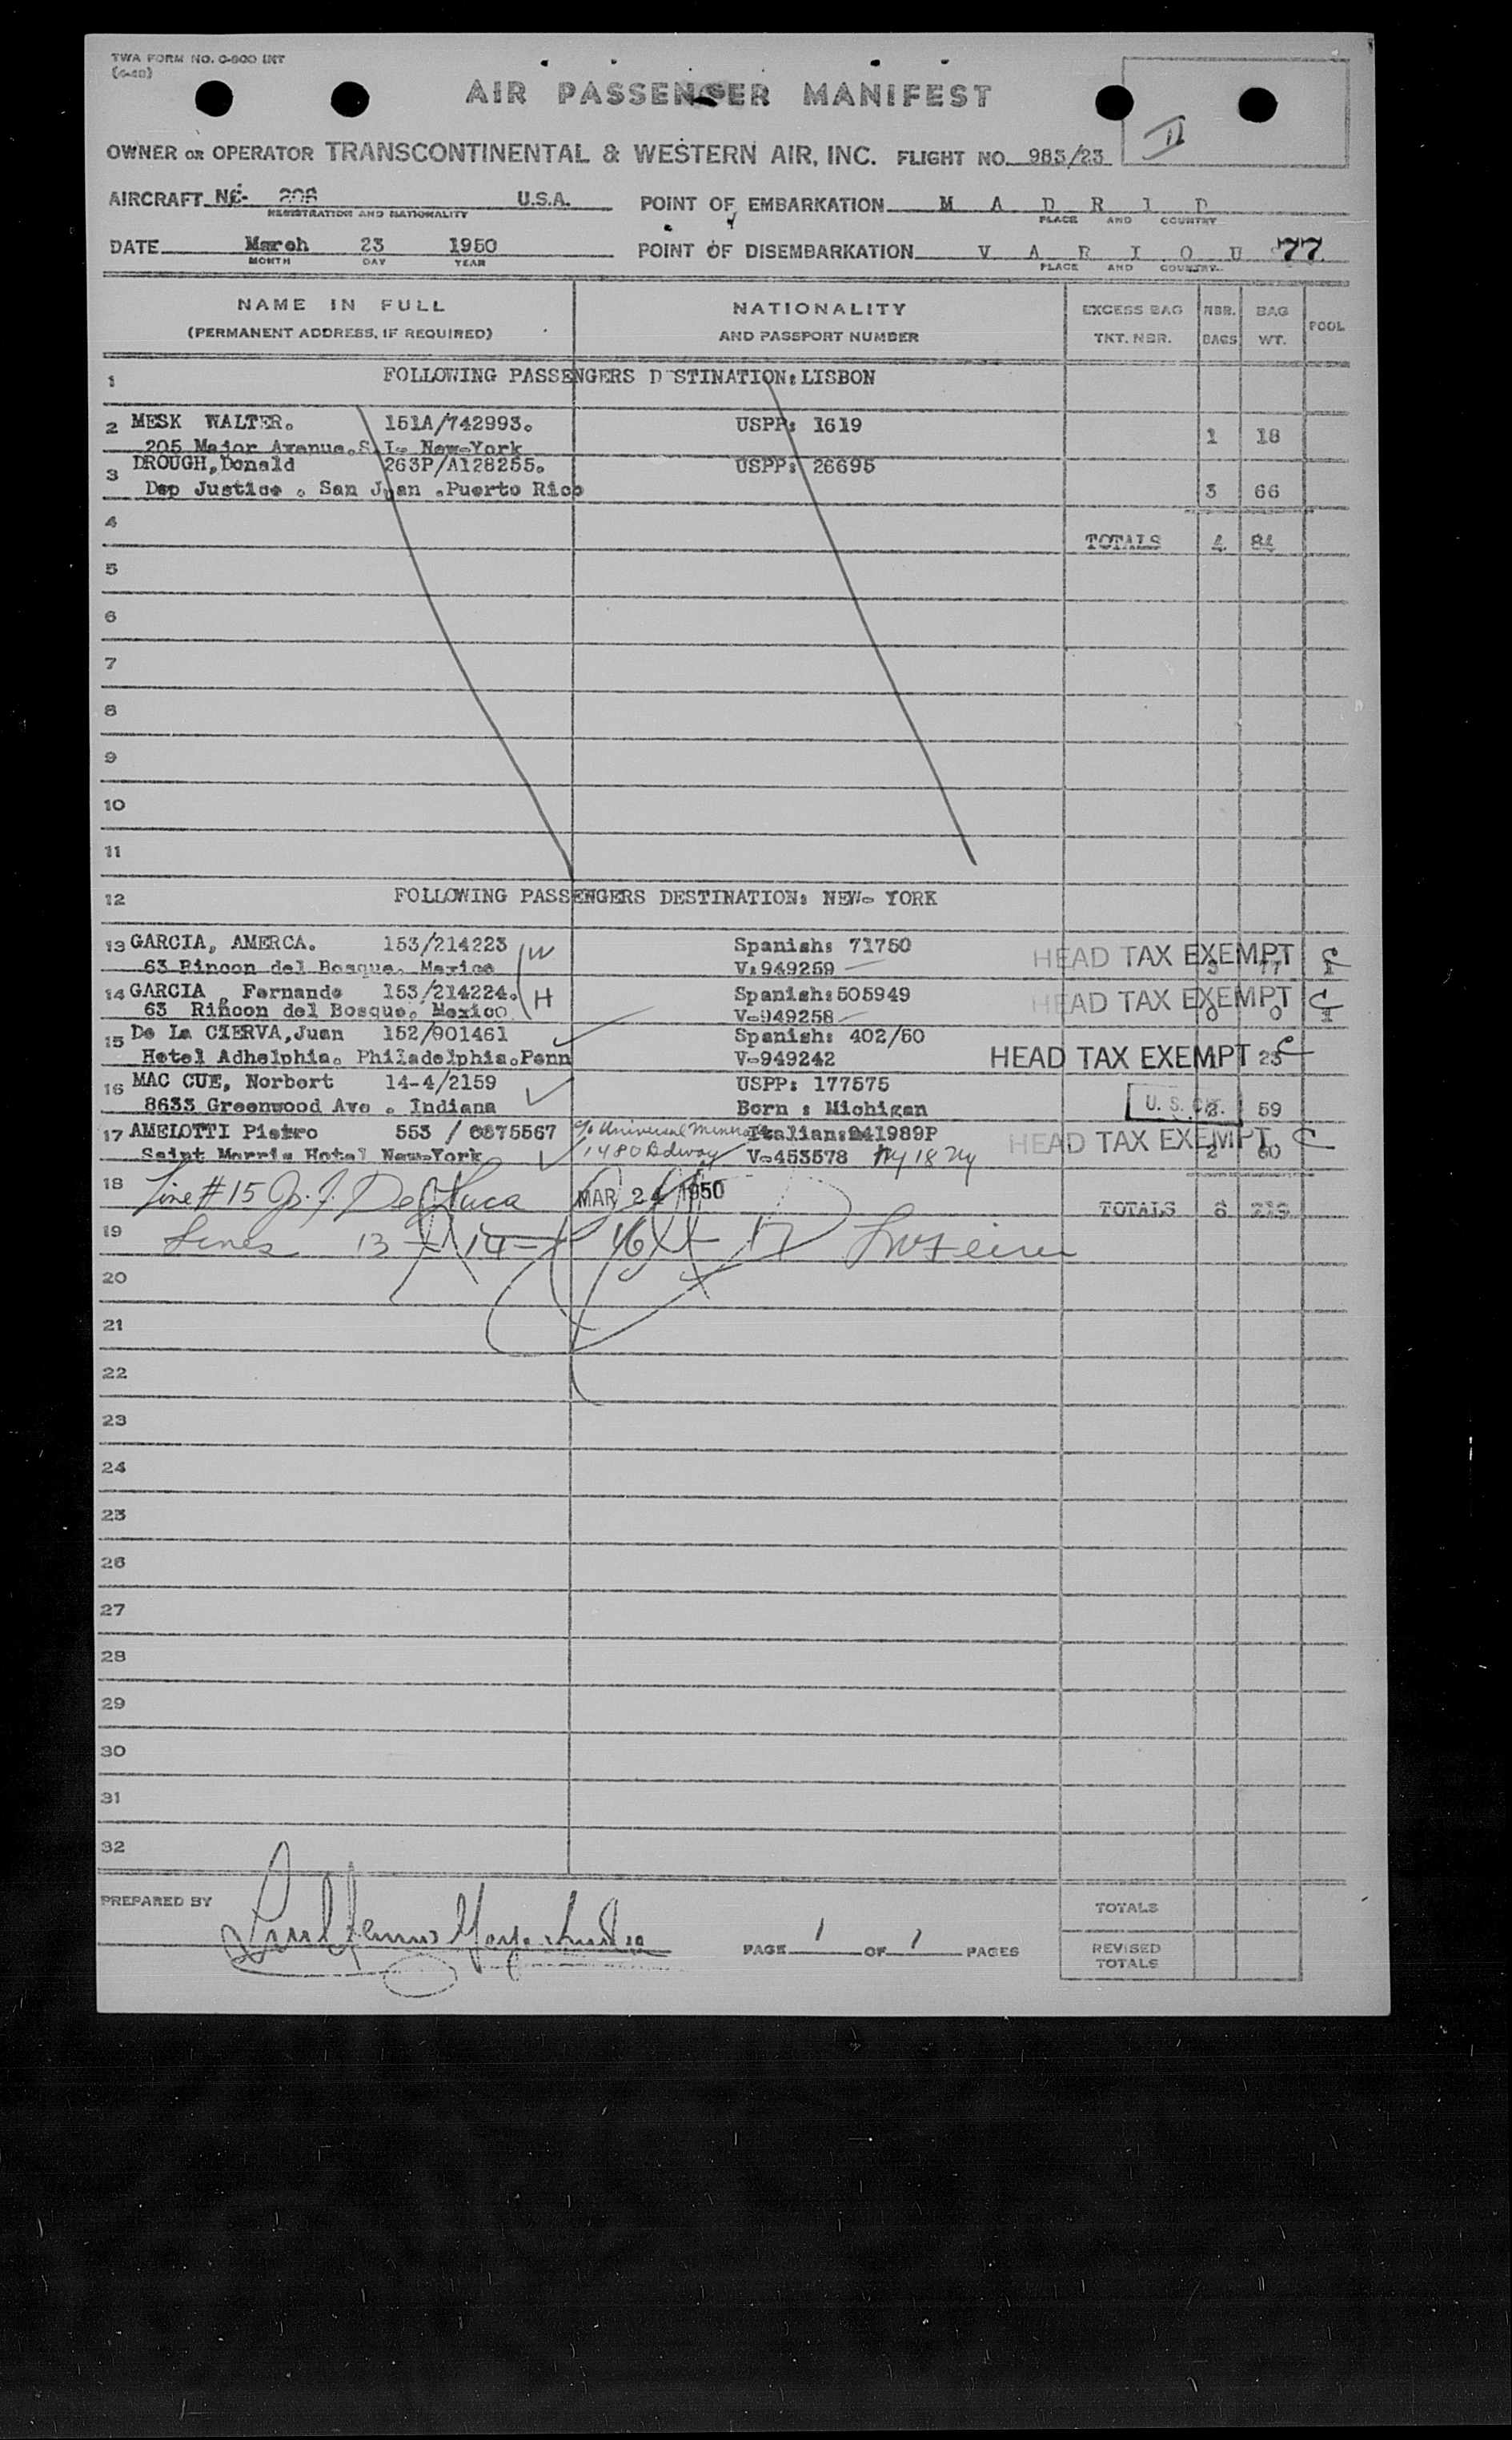 TWA FORM NO. O-800 INT
(4-48)
AIR PASSENGER MANIFEST
II
OWNER OR OPERATOR TRANSCONTINENTAL & WESTERN AIR, INC. FLIGHT NO. 983/23
AIRCRAFT NC- 208 U.S.A. POINT OF EMBARKATION M A D R I D
REGISTRATION AND NATIONALITY PLACE AND COUNTRY
DATE March 23 1950 POINT OF DISEMBARKATION V A R I O U 77
MONTH DAY YEAR PLACE AND COUNTRY
NAME IN FULL NATIONALITY EXCESS BAG NBR. BAG POOL
(PERMANENT ADDRESS, IF REQUIRED) AND PASSPORT NUMBER TKT. NBR. BAGS WT.
1 FOLLOWING PASSENGERS D STINATION: LISBON
2 MESK WALTER. 151A/742993. USPP: 1619 1 18
205 Major Avenue.S.I. New-York
3 DROUGH,Donald 263P/A128255. USPP: 26695
Dep Justice . San Juan .Puerto Rico 3 66
4 TOTALS 4 84
5
6
7
8
9
10
11
12 FOLLOWING PASSENGERS DESTINATION: NEW- YORK
13 GARCIA, AMERCA. 153/214223 W Spanish: 71750 HEAD TAX EXEMPT C
63 Rincon del Bosque. Mexico V:949259
14 GARCIA , Fernando 153/214224. H Spanish:505949 HEAD TAX EXEMPT C
63 Rincon del Bosque. Mexico V-949258 0 0
15 De La CIERVA,Juan 152/901461 Spanish: 402/50
Hotel Adhelphia. Philadelphia.Penn V-949242 HEAD TAX EXEMPT 23 C
16 MAC CUE, Norbert 14-4/2159 USPP: 177575
8633 Greenwood Ave . Indiana Born : Michigan U. S. Cit. 2 59
17 AMELOTTI Pietro 553 / 6675567 c/o Universal Mineral Italian:241989P HEAD TAX EXEMPT C
Saint Morris Hotel New-York 1480 Bdway V-453578 Ny 18 Ny 2 60
18 Line #15 J. J. DeLuca MAR 24 1950 TOTALS 8 219
19 Lines 13 - 14 - 16 - 17
20
21
22
23
24
25
26
27
28
29
30
31
32
PREPARED BY TOTALS
PAGE 1 OF 1 PAGES REVISED TOTALS